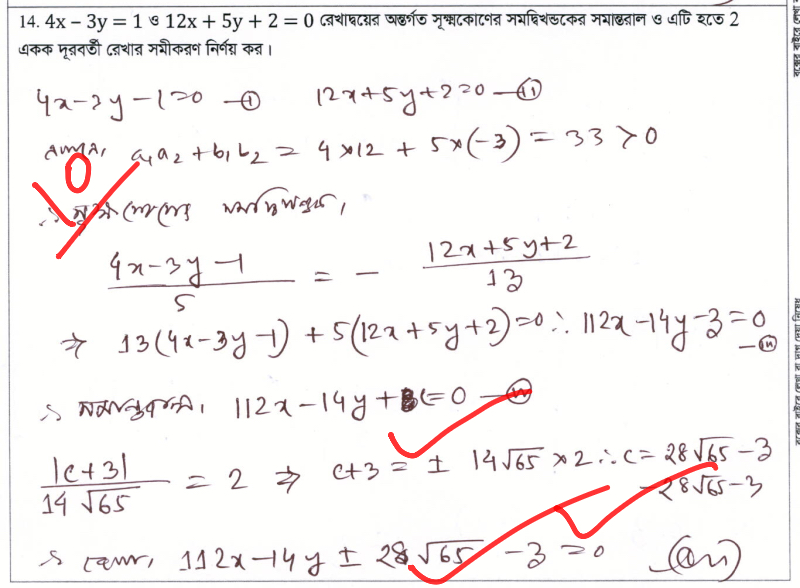 14. 4x − 3y = 1 ও 12x + 5y + 2 = 0 রেখাদ্বয়ের অন্তর্গত সূক্ষ্মকোণের সমদ্বিখন্ডকের সমান্তরাল ও এটি হতে 2
একক দূরবর্তী রেখার সমীকরণ নির্ণয় কর।
4x-3y-1=0 —(i) 12x+5y+2=0 —(ii)
a₁a₂ + b₁b₂ = 4×12 + 5×(-3) = 33 > 0
0
∴ সূক্ষ্মকোণের সমদ্বিখন্ডক,
(4x-3y-1)/5 = - (12x+5y+2)/13
⇒ 13(4x-3y-1) + 5(12x+5y+2)=0 ∴ 112x-14y-3=0 —(iii)
∴ সমান্তরাল, 112x-14y+c=0 —(iv)
|c+3|/(14√65) = 2 ⇒ c+3 = ± 14√65 ×2 ∴ c = 28√65-3
-28√65-3
∴ রেখা, 112x-14y ± 28√65 -3 =0 (Ans)